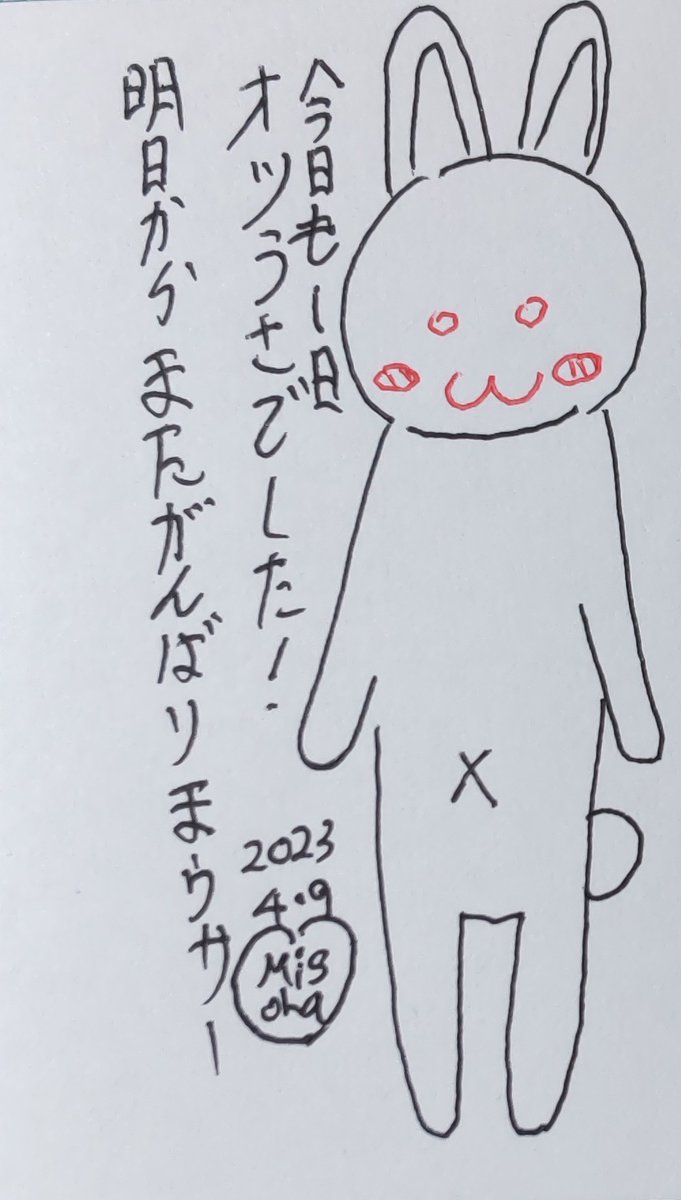 今日も一日
オツうさでした!
明日からまたがんばりまウサー
2023
4.9
Mis
oha